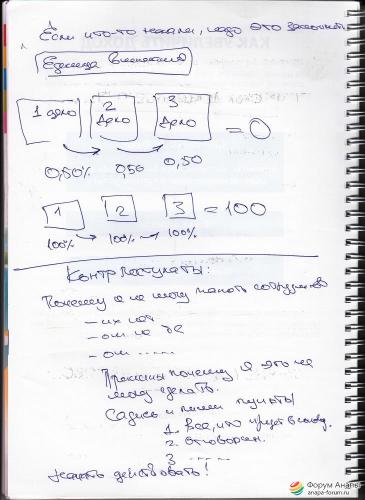 Если что-то начали, надо это закончить
Единица внимания
1 дело
2
Дело
3
Дело
= 0
0,50% 0,50 0,50
1 2 3 = 100
100% → 100% → 100%
Контрпостулаты:
Почему я не могу нанять сотрудников
– их нет
– они не
– они ......
Причины почему я это не
могу сделать.
Садись и пиши пункты
1. Все, что
2. отговорки.
3 .....
Начать действовать!
Форум Анапы
anapa-forum.ru